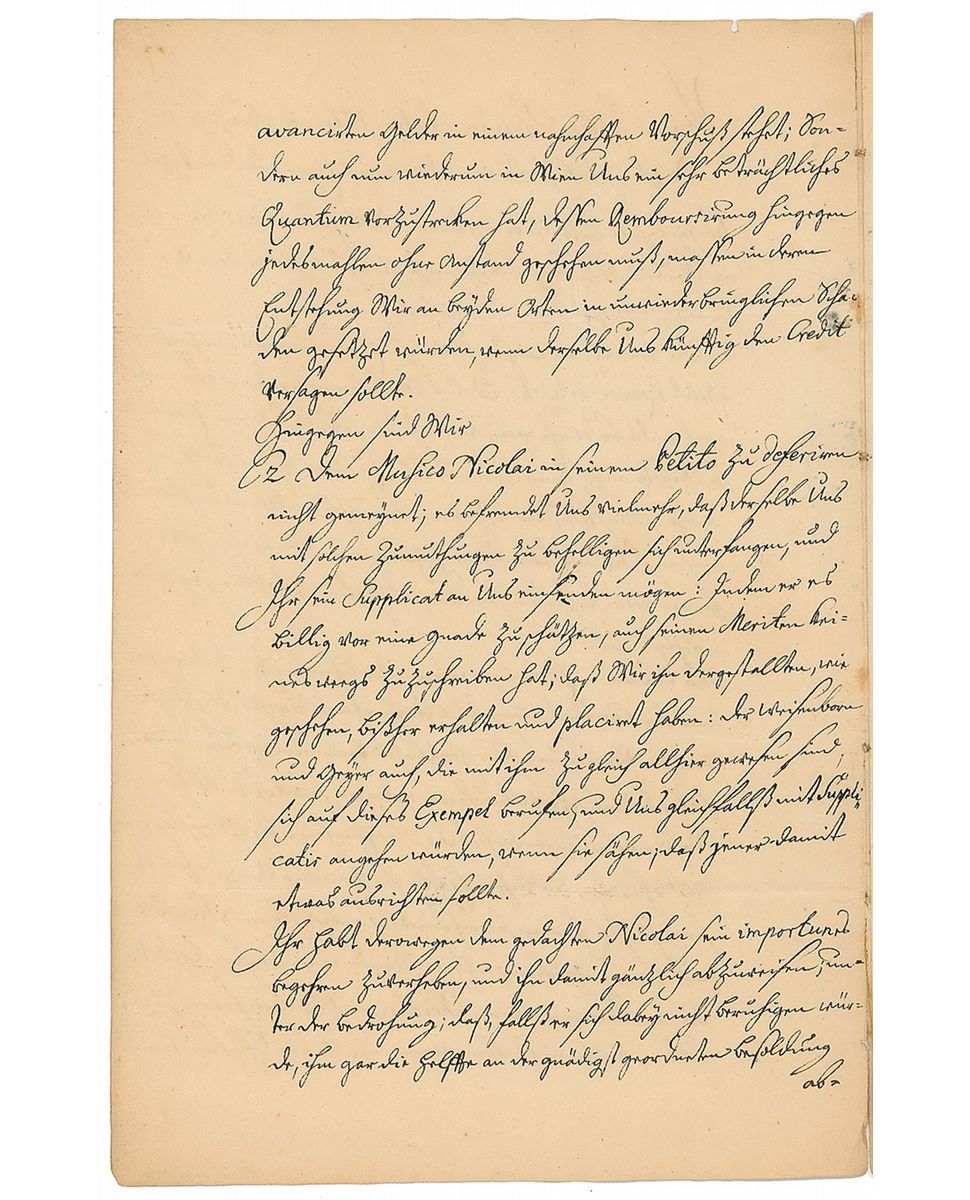 avancirten Gelder in einem nahmhafften Vorschuß stehet; Son-
dern auch nun wiederum in Wien Uns ein sehr beträchtliches
Quantum vorzustrecken hat, dessen Remboursirung hingegen
jedesmahlen ohne Anstand geschehen muß, massen in deren
Entstehung Wir an beyden Orten in unwiederbringlichen Scha-
den gesetzet würden, wenn derselbe Uns künfftig den Credit
versagen sollte.
Hingegen sind Wir
2 Dem Musico Nicolai in seinem Petito zu deferiren
nicht gemeynet; es befremdet Uns vielmehr, daß derselbe Uns
mit solchen Zumuthungen zu behelligen sich unterfangen, und
Ihr sein Supplicat an Uns einsenden mögen: Indem er es
billig vor eine Gnade zu schätzen, auch seinen Meriten kei-
nesweegs zuzuschreiben hat; daß Wir ihn dergestallten, wie
geschehen, bißher erhalten und placiret haben: der Weisenborn
und Geyer auch, die mit ihm zugleich allhier gewesen sind,
sich auf dieses Exempel berufen, und Uns gleichfallß mit Suppli-
catis angehen würden, wenn sie sähen; daß jener damit
etwas ausrichten sollte.
Ihr habt derowegen dem gedachten Nicolai sein importunes
begehren zu verheben, und ihn damit gäntzlich abzuweisen, un-
ter der bedrohung; daß, fallß er sich dabey nicht beruhigen wür-
de, ihm gar die Helffte an der gnädigst geordneten besoldung
ab-